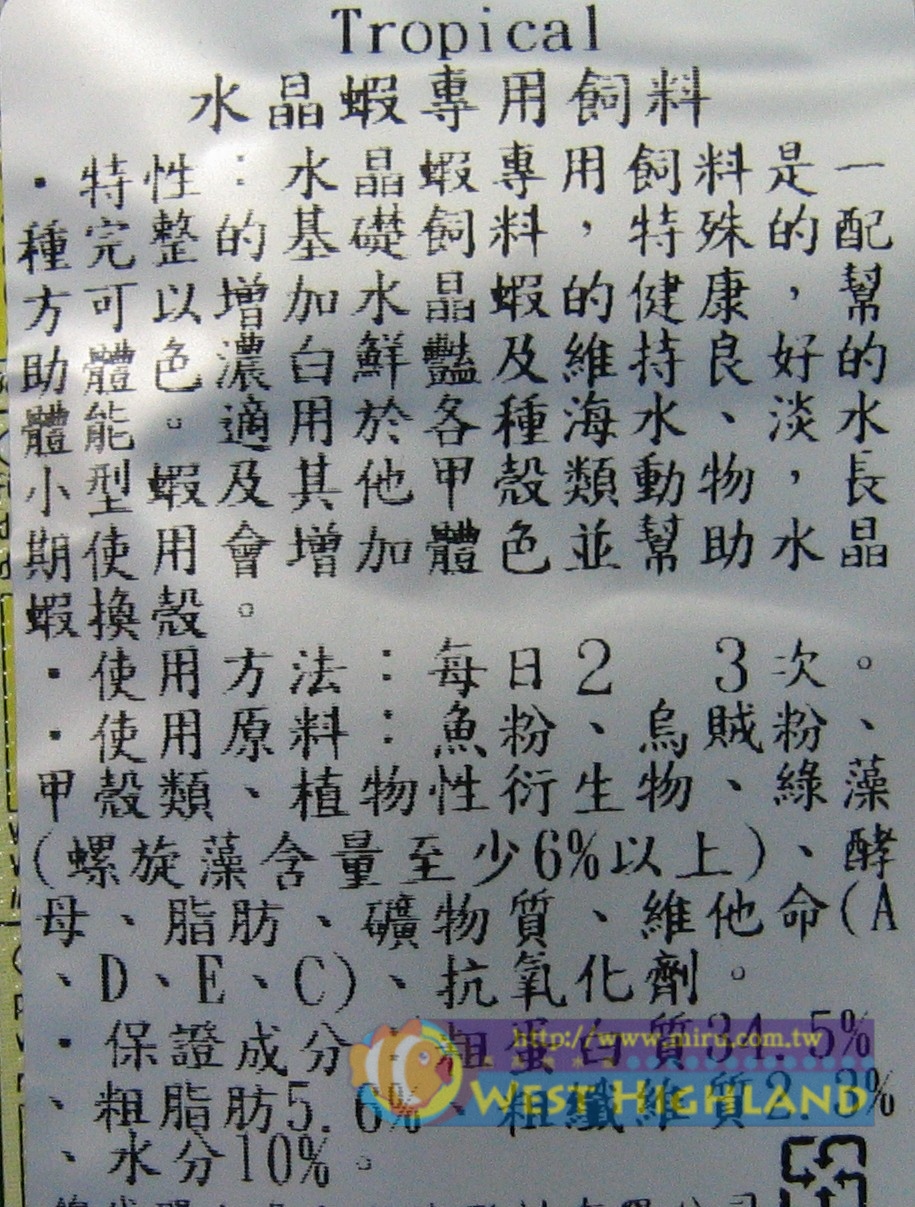 Tropical
水晶蝦專用飼料
·特性：水晶蝦專用飼料是一
種完整的基礎飼料，特殊的配
方可以增加水晶蝦的健康，幫
助體色濃白鮮豔及維持良好的
體能。適用於各種海水、淡水
小型蝦及其他甲殼類動物，長
期使用會增加體色並幫助水晶
蝦換殼。
·使用方法：每日2 3次。
·使用原料：魚粉、烏賊粉、
甲殼類、植物性衍生物、綠藻
(螺旋藻含量至少6%以上)、酵
母、脂肪、礦物質、維他命(A
、D、E、C)、抗氧化劑。
·保證成分：粗蛋白質34.5%
http://www.miru.com.tw
、粗脂肪5.6%、粗纖維質2.3%
WEST HIGHLAND
、水分10%。